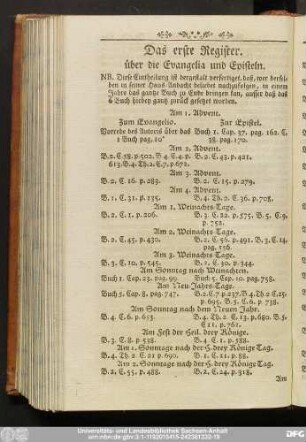 Das erste Register.
über die Evangelia und Episteln.
NB. Diese Eintheilung ist dergestalt verfertiget, daß, wer derselben
in seiner Haus-Andacht beliebet nachzufolgen, in einem
Jahre das gantze Buch zu Ende bringen kan, ausser daß das
Buch hiebey gantz zurück gesetzet worden.
Am 1. Advent.
Zum Evangelio. Zur Epistel.
Vorrede des Autoris über das Buch 1. Cap. 37. pag. 162. C.
1 Buch pag. 10 38. pag. 170.
Am 2. Advent.
B. 2. C. 58. p. 502. B. 4. C. 4. p. B. 2. C. 42. p. 421.
613. B. 4. Th. 2. C. 7. p. 672.
Am 3. Advent.
B. 2. C. 16. p. 283. B. 2. C. 15. p. 279.
Am 4. Advent.
B. 1. C. 31. p. 135. B. 4. Th. 2. C. 36. p. 708.
Am 1. Weinachts-Tage.
B. 2. C. 1. p. 206. B. 3. C. 22. p. 575. B. 5. C. 9.
p. 752.
Am 2. Weinachts-Tage.
B. 2. C. 45. p. 430. B. 2. C. 56. p. 491. B. 3. C. 14.
pag. 156.
Am 3. Weinachts-Tage.
B. 3. C. 10. p. 545. B. 2. C. 30. p. 344.
Am Sonntag nach Weinachten.
Buch 1. Cap. 23. pag. 99. Buch 5. Cap. 10. pag. 758.
Am Neu-Jahrs-Tage.
Buch 5. Cap. 8. pag. 747. B. 2. C. 7. p. 237. B. 4. Th. 2. C. 25.
p. 695. B. 5. C. 6. p. 738.
Am Sonntag nach dem Neuen Jahr.
B. 4. C. 6. p. 635. B. 4. Th. 2. C. 13. p. 680. B. 5.
C. 11. p. 761.
Am Fest der Heil. drey Könige.
B. 3. C. 8. p. 538. B. 4. C. 1. p. 588.
Am 1. Sonntage nach der H. drey Könige Tag.
B. 4. Th. 2. C. 21. p. 690. B. 1. C. 21. p. 88.
Am 2. Sonntage nach der H. drey Könige Tag.
B. 2. C. 55. p. 488. B. 2. C. 24. p. 318.
Am
Universitäts- und Landesbibliothek Sachsen-Anhalt
DFG